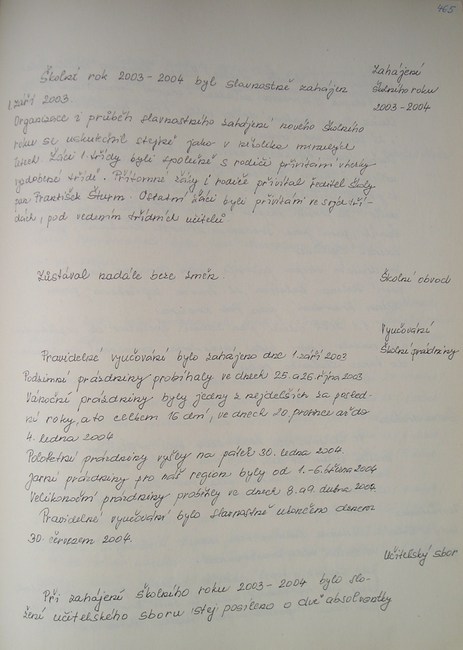 465
Zahájení
školního roku
2003-2004
Školní rok 2003-2004 byl slavnostně zahájen
1. září 2003.
Organizace i průběh slavnostního zahájení nového školního
roku se uskutečnil stejně jako v několika minulých
letech. Žáci 1. třídy byli společně s rodiči přivítáni
vyzdobené třídě. Přítomné žáky i rodiče přivítal ředitel školy
pan František Šturm. Ostatní žáci byli přivítáni ve svých tří-
dách, pod vedením třídních učitelů.
Školní obvod
Zůstával nadále beze změn.
Vyučování
Školní prázdniny
Pravidelné vyučování bylo zahájeno dne 1. září 2003
Podzimní prázdniny probíhaly ve dnech 25. a 26. října 2003
Vánoční prázdniny byly jedny z nejdelších za posled-
ní roky, a to celkem 16 dní, ve dnech 20. prosince až do
4. ledna 2004
Pololetní prázdniny vyšly na pátek 30. ledna 2004.
Jarní prázdniny pro náš region byly od 1.-6. března 2004
Velikonoční prázdniny proběhly ve dnech 8. a 9. dubna 2004.
Pravidelné vyučování bylo slavnostně ukončeno dnem
30. červnem 2004.
Učitelský sbor
Při zahájení školního roku 2003-2004 bylo slo-
žení učitelského sboru posíleno o dvě absolventky